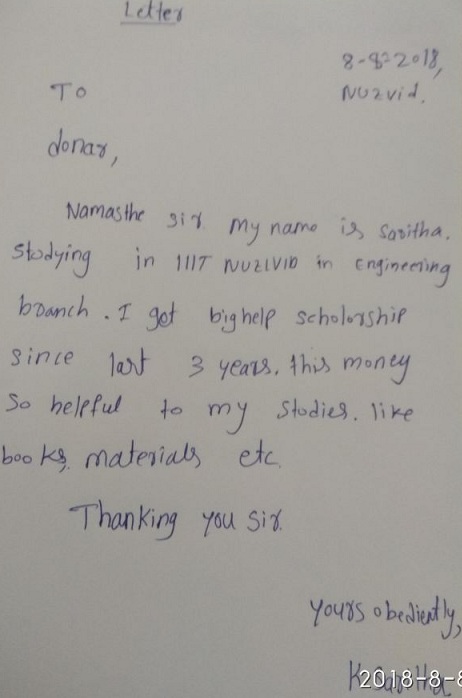 Letter
8-8-2018,
Nuzvid.
To
donar,
Namasthe sir. my name is Savitha.
studying in IIIT NUZIVID in Engineering
branch. I get big help scholorship
since last 3 years. this money
so helpful to my studies. like
books, materials etc.
Thanking you sir.
yours obediently,
2018-8-8